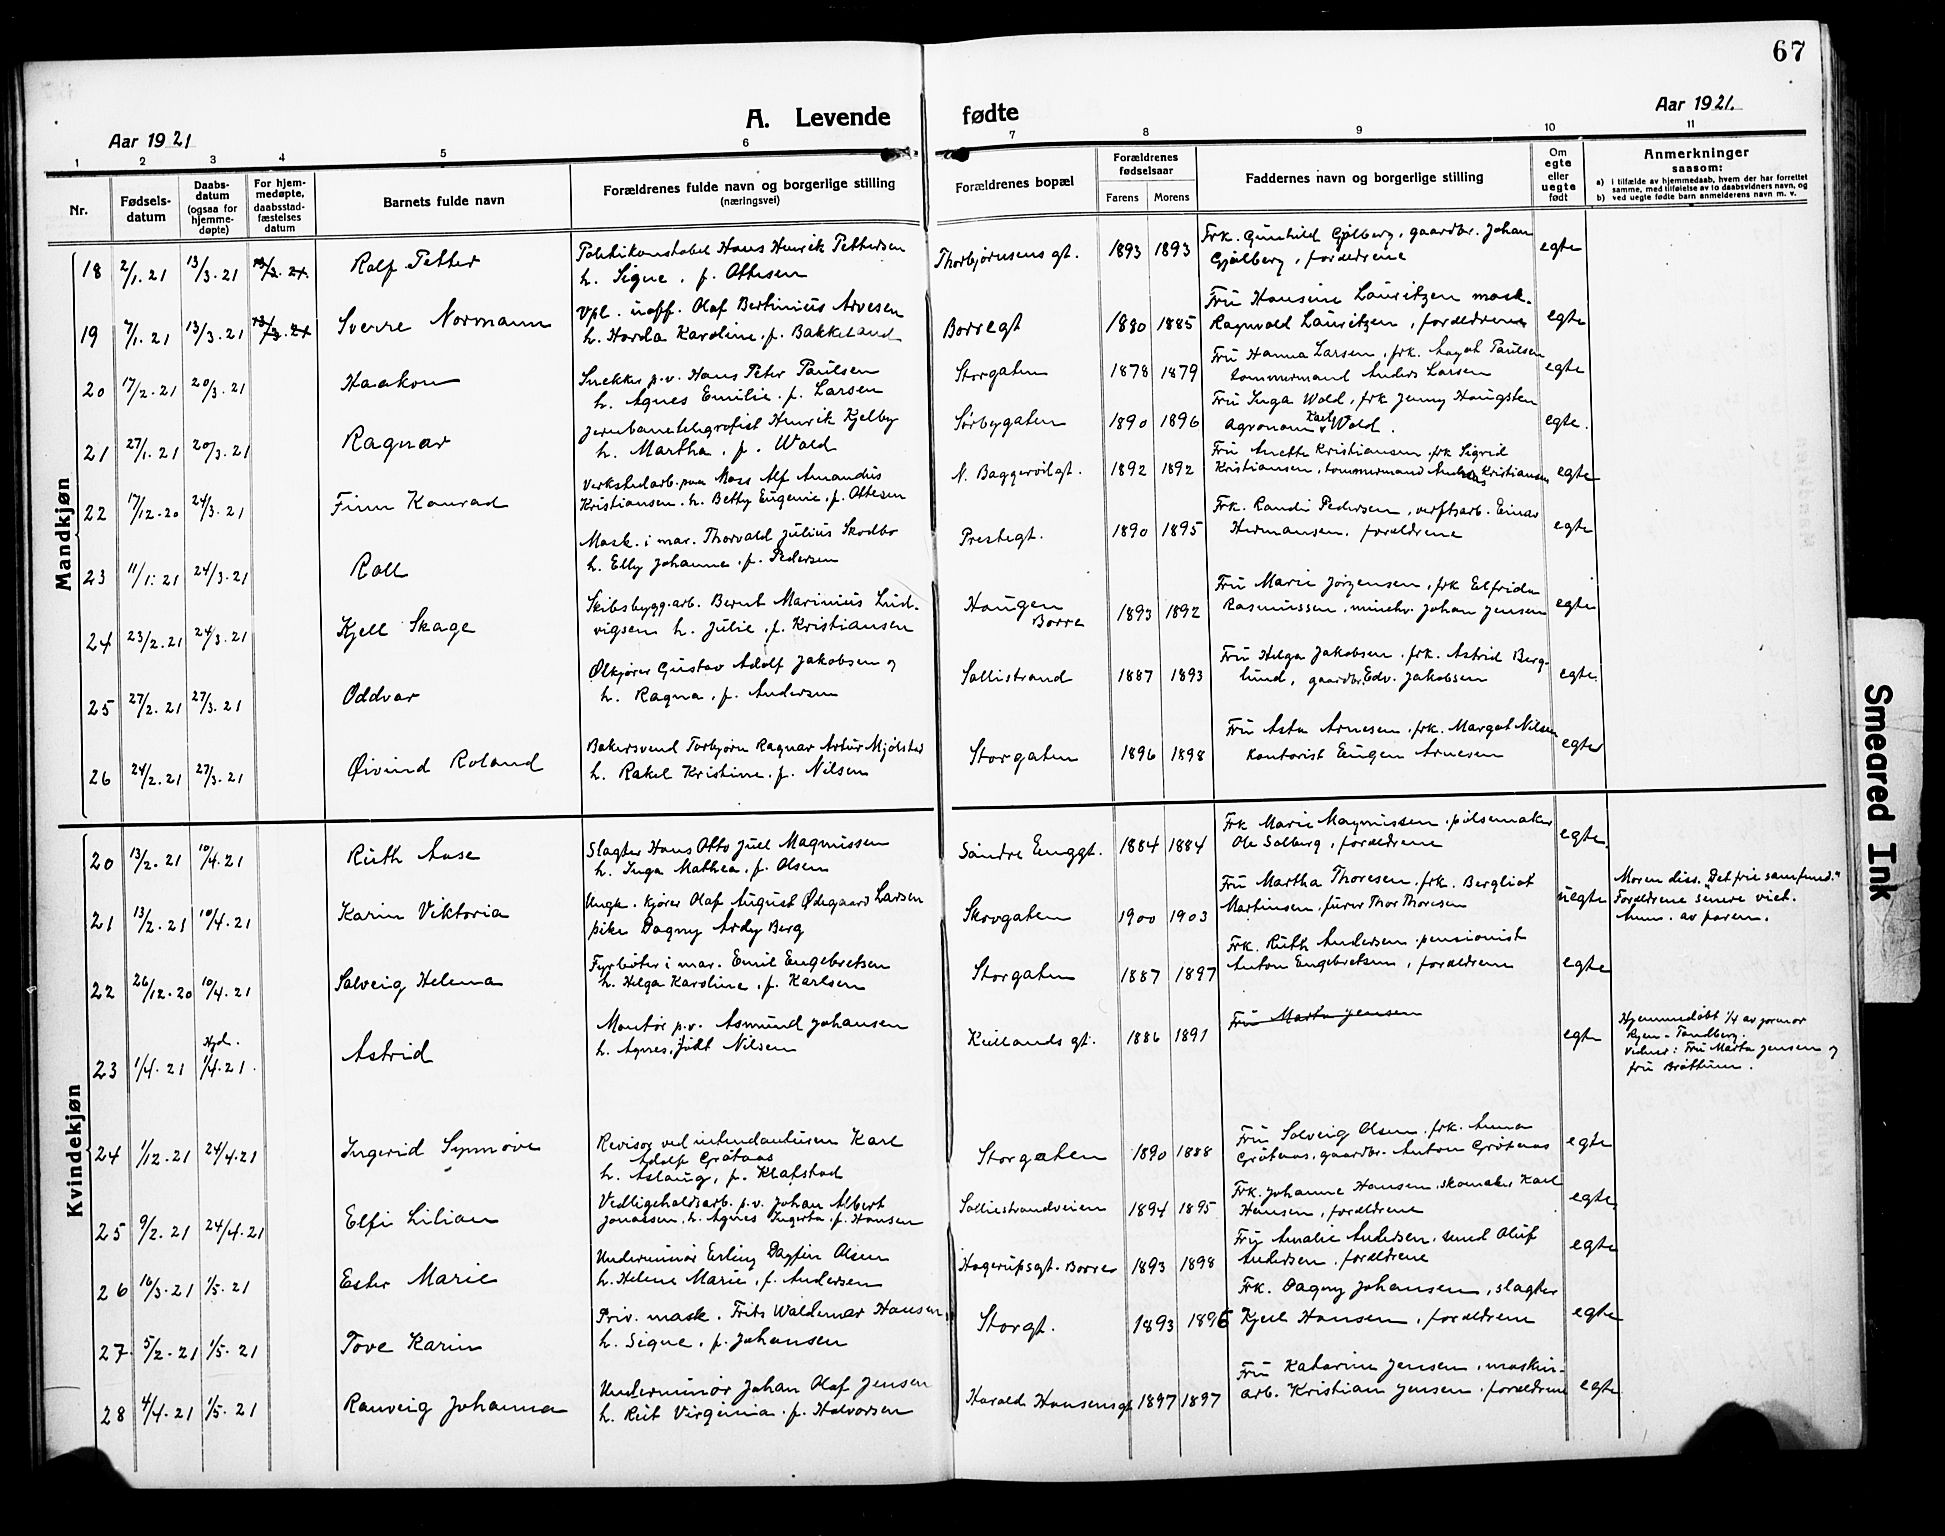 67
Aar 1921
A. Levende fødte
Aar 1921.
1 2 3 4 5 6 7 8 9 10 11
Nr.
Fødsels-
datum
Daabs-
datum
(ogsaa for
hjemme-
døpte)
For hjem-
medøpte,
daabsstad-
fæstelses
datum
Barnets fulde navn
Forældrenes fulde navn og borgerlige stilling
(næringsvei)
Forældrenes bopæl
Forældrenes
fødselsaar
Farens Morens
Faddernes navn og borgerlige stilling
Om
egte
eller
uegte
født
Anmerkninger
saasom:
a) i tilfælde av hjemmedaab, hvem der har forrettet
samme, med tilføielse av to daabsvidners navn, og
b) ved uegte fødte barn anmelderens navn m. v.
Mandkjøn
18 2/1. 21 13/3. 21 13/3. 21 Rolf Petter
Politikonstabel Hans Henrik Pettersen
h. Signe, f. Ottesen
Thorbjørnsens gt. 1893 1893
Frk. Gunhild Gjølberg, gaardbr. Johan
Gjølberg, forældrene
egte
19 7/1. 21 13/3. 21 13/3. 21 Sverre Normann
Vpl. uoff. Olaf Bertinius Arvesen
h. Harda Karoline, f. Bakkeland
Borregt 1880 1885
Fru Hansine Lauritzen mask.
Ragnvald Lauritzen, forældrene
egte
20 17/2. 21 20/3. 21 Haakon
Snekker p.v. Hans Peter Paulsen
h. Agnes Emilie, f. Larsen
Storgaten 1878 1879
Fru Hanna Larsen, frk. Aagot Paulsen
tommermand Anders Larsen
egte
21 27/1. 21 20/3. 21 Ragnar
Jernbanetelegrafist Henrik Kjelby
h. Martha, f. Wold
Sørbygaten 1890 1896
Fru Inga Wold, frk Jenny Haugsten
agronom Karl Wold.
egte.
22 17/12. 20 24/3. 21 Finn Konrad
Verkstedarb. paa Moss Alf Amandus
Kristiansen, h. Betty Eugenie, f. Ottesen
N. Baggerødgt. 1892 1892
Fru Anette Kristiansen, frk Sigrid
Kristiansen, tommermand Anders Kristiansen
egte
23 11/1. 21 24/3. 21 Roll
Mask. i mar. Thorvald Julius Skodbo
h. Elly Johanne, f. Pedersen
Prestegt. 1890 1895
Frk. Randi Pedersen, verftsarb. Einar
Hermansen, forældrene
egte
24 23/2. 21 24/3. 21 Kjell Skage
Skibsbygg.arb. Bernt Marinius Lud-
vigsen h. Julie, f. Kristiansen
Haugen
Borre
1893 1892
Fru Marie Jørgensen, frk Elfrida
Rasmussen, minebr. Johan Jensen
egte
25 27/2. 21 27/3. 21 Oddvar
Ølkjører Gustav Adolf Jakobsen og
h. Ragna, f. Andersen
Sollistrand 1887 1893
Fru Helga Jakobsen, frk. Astrid Berg-
lund, gaardbr. Edv. Jakobsen
egte.
26 24/2. 21 27/3. 21 Øivind Roland
Bakersvend Torbjørn Ragnar Artur Mjølstad
h. Rakel Kristine, f. Nilsen
Storgaten 1896 1898
Fru Asta Arnesen, frk. Margot Nilsen
kontorist Eugen Arnesen
egte
Kvindekjøn
20 13/2. 21 10/4. 21 Ruth Aase
Slagter Hans Otto Juel Magnussen
h. Inga Mathea, f. Olsen
Søndre Enggt. 1884 1884
Frk Marie Magnussen, pølsemaker
Ole Solberg, forældrene
egte.
21 13/2. 21 10/4. 21 Karin Viktoria
Ungk. kjører Olaf August Ødegaard Larsen
pike Dagny Ardy Berg
Skovgaten 1900 1903
Fru Martha Thoresen, frk. Bergliot
Martinsen, furer Thor Thoresen
uegte
Moren diss. "Det frie samfund."
Forældrene senere viet.
Anm. av faren.
22 26/12. 20 10/4. 21 Solveig Helena
Fyrbøter i mar. Emil Engebretsen
h. Helga Karoline, f. Karlsen
Storgaten 1887 1897
Frk. Ruth Andersen, pensionist
Anton Engebretsen, forældrene
egte
23 1/4. 21 Hjd. 1/4. 21. Astrid
Montør p.v. Asmund Johansen
h. Agnes, født Nilsen
Kiellands gt. 1886 1891
Fru Marta Jensen
egte
Hjemmedøbt 1/4 av jormor
Ryen-Tandberg.
Vidner: Fru Marta Jensen og
fru Brøttum.
24 1/12. 21 24/4. 21 Ingerid Synnøve
Revisor ved intendanturen Karl
Adolf Grøtaas
h. Aslaug, f. Klafstad
Storgaten 1890 1888
Fru Solveig Olsen, frk. Anna
Grøtaas, gaardbr. Anton Grøtaas
egte
25 9/2. 21 24/4. 21 Elfi Lilian
Vedligeholdsarb. p.v. Johan Albert
Jonassen, h. Agnes Ingerta, f. Hansen
Solliestrandveien 1894 1895
Frk. Johanne Hansen, skomaker Karl
Hansen, forældrene
egte
26 16/3. 21 1/5. 21 Ester Marie
Underminør Erling Dagfin Olsen
h. Helene Marie, f. Andersen
Hagerupsgt. Borre 1893 1898
Fru Amalie Andersen, smed Oluf
Andersen, forældrene
egte
27 5/2. 21 1/5. 21 Tove Karin
Priv. mask. Frits Waldemar Hansen,
h. Signe, f. Johansen
Storgt. 1893 1896
Frk. Dagny Johansen, slagter
Kjell Hansen, forældrene
egte
28 4/4. 21 1/5. 21 Ranveig Johanna
Underminør Johan Olaf Jensen
h. Rut Virginia, f. Halvorsen
Harald Hansens gt 1897 1897
Fru Katarina Jensen, maskin-
arb. Kristian Jensen, forældrene
egte
Smeared Ink